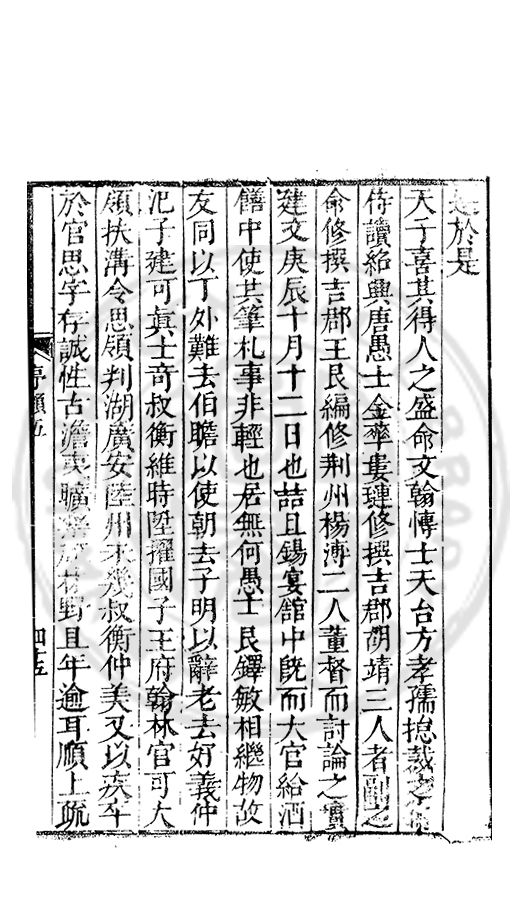 於是
天子喜其得人之盛命文翰博士天台方孝孺揔裁之
侍讀紹興唐愚士金華婁璉修撰吉郡胡靖三人者副之
命修撰吉郡王艮編修荆州楊溥二人董督而討論之實
建文庚辰十月十二日也詰旦錫宴舘中旣而大官給酒
饍中使共筆札事非輕也居無何愚士艮鐸敏相繼物故
友同以丁外難去伯瞻以使朝去子明以辭老去好義仲
汜子建可眞士竒叔衡維時陞擢國子王府翰林官可大
領扶溝令思領判湖廣安陸州未幾叔衡仲美又以疾卒
於官思字存誠性古澹夷曠無材野且年逾耳順上疏